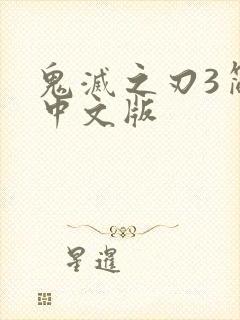 鬼滅之刃3簡
中文版
星暹